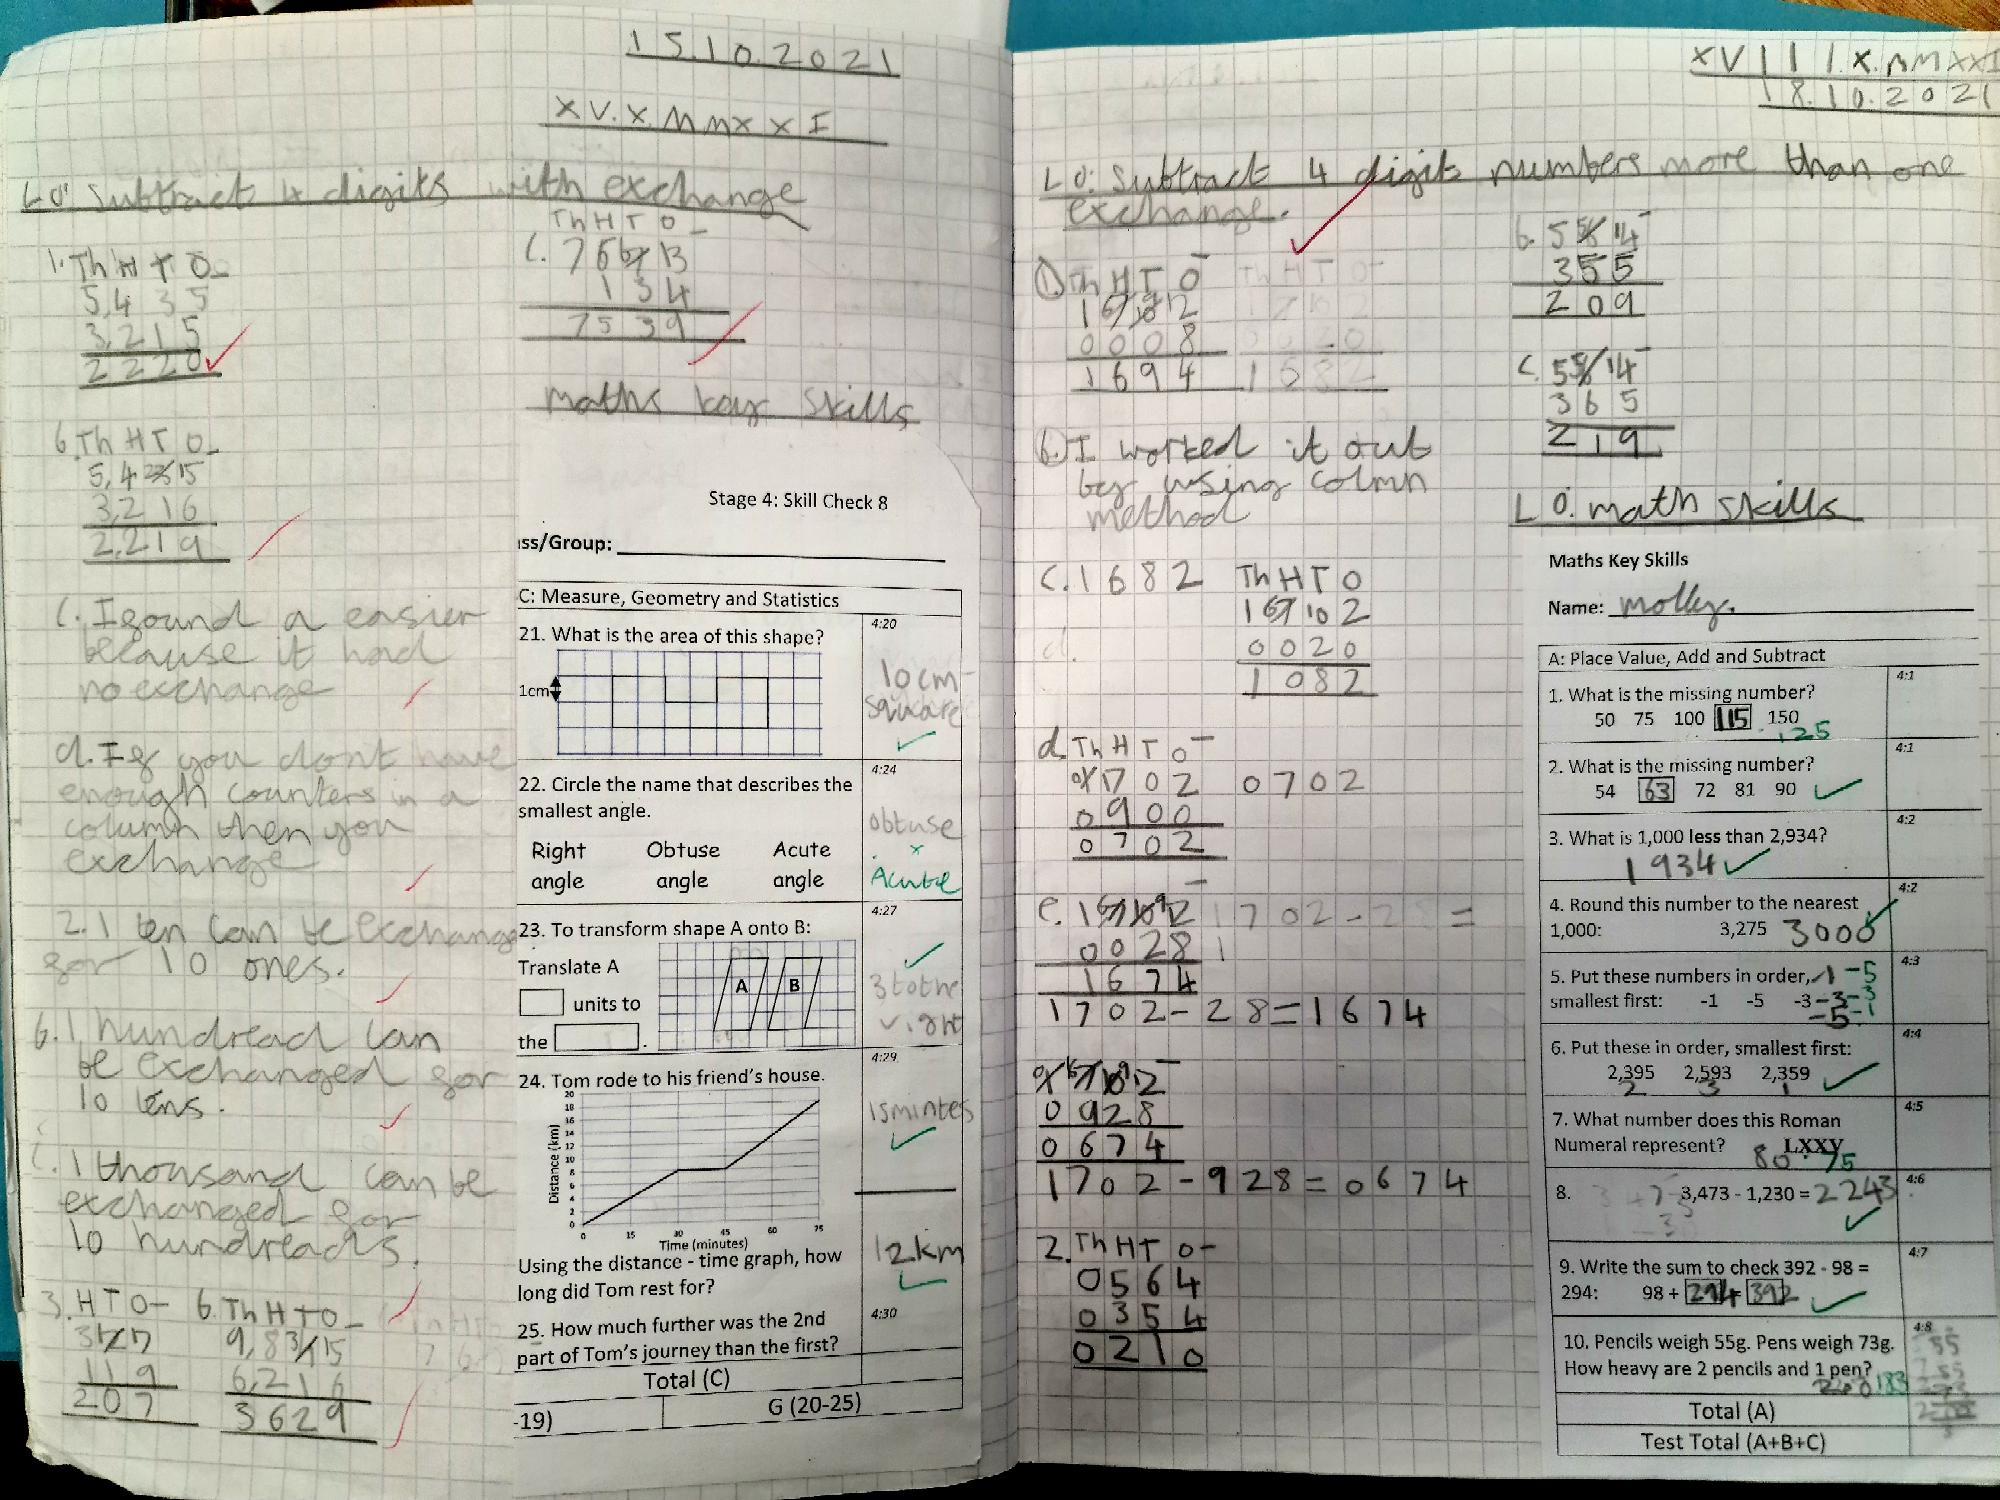 15.10.2021
XV.X.MMXXI
LO: Subtract 4 digits with exchange
1. Th H T O -
5,4 3 5
3,2 1 5
2 2 2 0
b. Th H T O -
5,4 15
3,2 1 6
2,2 1 9
c. I found a easier
because it had
no exchange
d. If you dont have
enough counters in a
column then you
exchange
2. 1 ten can be exchange
for 10 ones.
b. 1 hundread can
be exchanged for
10 tens.
c. 1 thousand can be
exchanged for
10 hundreads.
3. H T O -
1 1 9
2 0 7
b. Th H T O -
9,8 15
6,2 1 6
3 6 2 9
Th H T O -
c. 7 6 13
1 3 4
7 5 3 9
maths key skills
Stage 4: Skill Check 8
ss/Group:
C: Measure, Geometry and Statistics
21. What is the area of this shape?
4:20
1cm
10cm
square
22. Circle the name that describes the
smallest angle.
4:24
Right angle
Obtuse angle
Acute angle
obtuse
x
Acute
23. To transform shape A onto B:
4:27
Translate A
units to
the .
A B
3 to the
right
24. Tom rode to his friend's house.
4:29
Distance (km)
20
18
16
14
12
10
8
6
4
2
0
0 15 30 45 60 75
Time (minutes)
15 mintes
Using the distance - time graph, how
long did Tom rest for?
12km
25. How much further was the 2nd
part of Tom's journey than the first?
4:30
Total (C)
-19) G (20-25)
XVIII.X.MMXXI
18.10.2021
LO: Subtract 4 digits numbers more than one
exchange.
1. Th H T O -
0 0 0 8
1 6 9 4
b. I worked it out
by using colmn
method
c. 1 6 8 2
Th H T O
1 6 7 10 2
0 0 2 0
1 0 8 2
d. Th H T O -
17 0 2 0 7 0 2
0 9 0 0
0 7 0 2
e. 1702 - 28 =
0 0 2 8
1 6 7 4
1702 - 28 = 1674
0 9 2 8
0 6 7 4
1702 - 928 = 0674
2. Th H T O -
0 5 6 4
0 3 5 4
0 2 1 0
b. 5 14 -
3 5 5
2 0 9
c. 5 14 -
3 6 5
2 1 9
LO: math skills
Maths Key Skills
Name: molly.
A: Place Value, Add and Subtract
1. What is the missing number?
4:1
50 75 100 115 150
125
2. What is the missing number?
4:1
54 63 72 81 90
3. What is 1,000 less than 2,934?
4:2
1934
4. Round this number to the nearest
4:2
1,000: 3,275 3000
5. Put these numbers in order, -1 -5
4:3
smallest first: -1 -5 -3 -3 -3
-5 -1
6. Put these in order, smallest first:
4:4
2,395 2,593 2,359
2 3 1
7. What number does this Roman
4:5
Numeral represent? LXXV
80 75
8. 3,473 - 1,230 = 2243
4:6
9. Write the sum to check 392 - 98 =
4:7
294: 98 + 294 = 392
10. Pencils weigh 55g. Pens weigh 73g.
4:8
How heavy are 2 pencils and 1 pen?
183
Total (A)
Test Total (A+B+C)